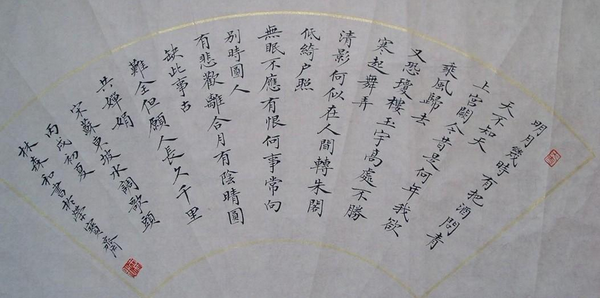 明月幾時有把酒問青
天不知天
上宮闕今昔是何年我欲
乘風歸去
又恐瓊樓玉宇高處不勝
寒起舞弄
清影何似在人間轉朱閣
低綺户照
無眠不應有恨何事常向
別時圓人
有悲歡離合月有陰晴圓
缺此事古
難全但願人長久千里
共嬋娟
宋蘇東坡水調歌頭
丙戌初夏
林森和書於榮寶齋